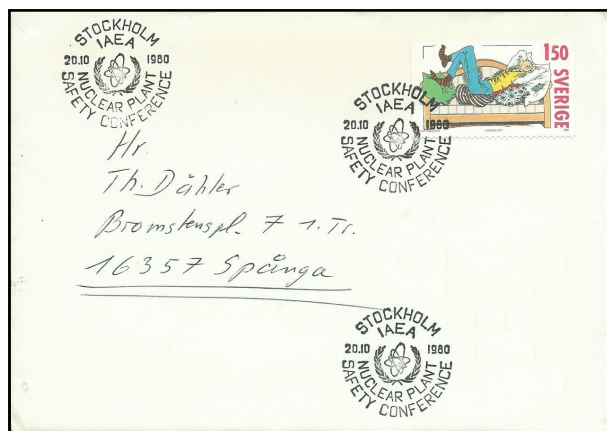 STOCKHOLM
IAEA
20.10 1980
NUCLEAR PLANT
SAFETY CONFERENCE
150
SVERIGE
STOCKHOLM
IAEA
20.10 1980
NUCLEAR PLANT
SAFETY CONFERENCE
Hr.
Th. Dähler
Bromstenspl. 7 1. Tr.
16357 Spånga
STOCKHOLM
IAEA
20.10 1980
NUCLEAR PLANT
SAFETY CONFERENCE